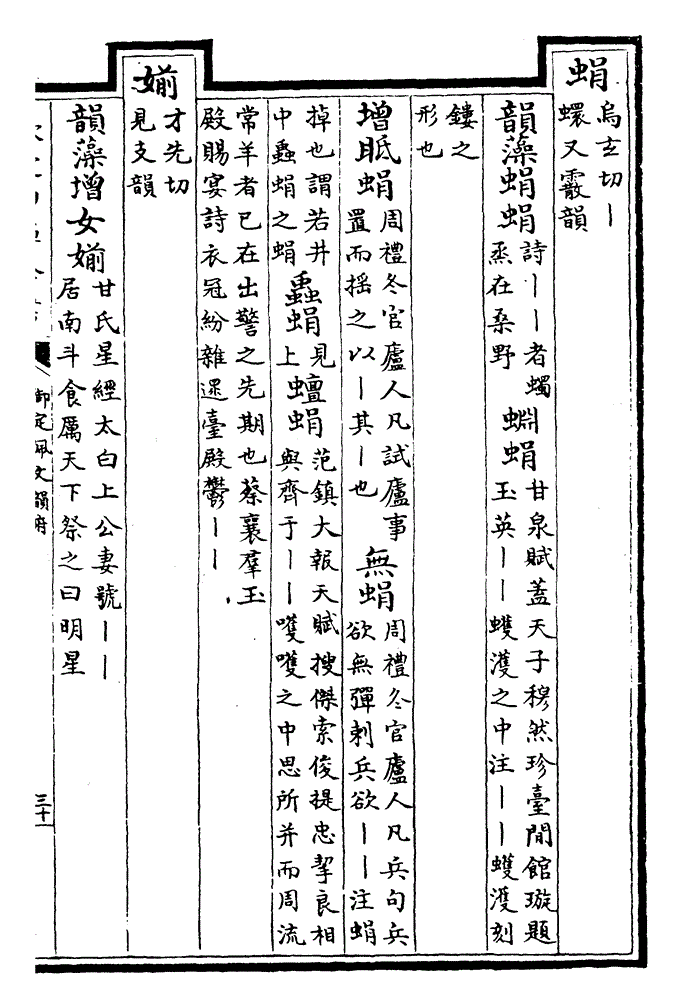 蜎
烏玄切丨
蠉又霰韻
韻藻蜎蜎
詩丨丨者蠋
烝在桑野
蜵蜎
甘泉賦蓋天子穆然珍臺閒館璇題
玉英丨丨蠖濩之中注丨丨蠖濩刻
鏤之
形也
增眂蜎
周禮冬官廬人凡試廬事
置而摇之以丨其丨也
無蜎
周禮冬官廬人凡兵句兵
欲無彈刺兵欲丨丨注蜎
掉也謂若井
中蟲蜎之蜎
蟲蜎
見
上
蟺蜎
范鎮大報天賦搜傑索俊提忠挈良相
與齊于丨丨嚄嚄之中思所并而周流
常羊者已在出警之先期也蔡襄羣玉
殿賜宴詩衣冠紛雜遝臺殿鬱丨丨
媊
才先切
見支韻
韻藻增女媊
甘氏星經太白上公妻號丨丨
居南斗食厲天下祭之曰明星
御定佩文韻府
三十